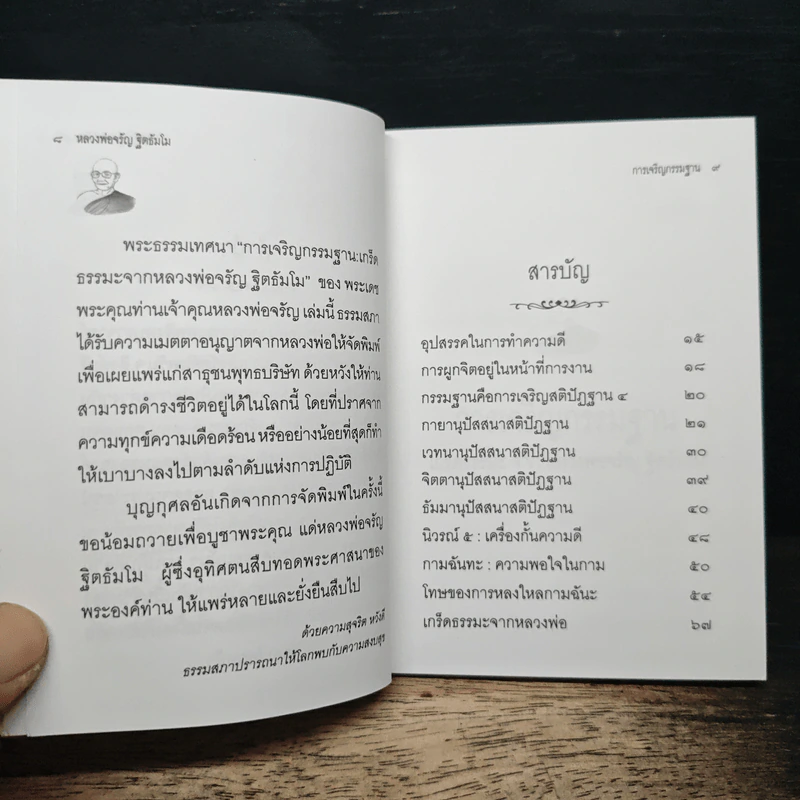 ๘ หลวงพ่อจรัญ ฐิตธัมโม
พระธรรมเทศนา "การเจริญกรรมฐาน:เกร็ด
ธรรมะจากหลวงพ่อจรัญ ฐิตธัมโม" ของ พระเดช
พระคุณท่านเจ้าคุณหลวงพ่อจรัญ เล่มนี้ ธรรมสภา
ได้รับความเมตตาอนุญาตจากหลวงพ่อให้จัดพิมพ์
เพื่อเผยแพร่แก่สาธุชนพุทธบริษัท ด้วยหวังให้ท่าน
สามารถดำรงชีวิตอยู่ได้ในโลกนี้ โดยที่ปราศจาก
ความทุกข์ความเดือดร้อน หรืออย่างน้อยที่สุดก็ทำ
ให้เบาบางลงไปตามลำดับแห่งการปฏิบัติ
บุญกุศลอันเกิดจากการจัดพิมพ์ในครั้งนี้
ขอน้อมถวายเพื่อบูชาพระคุณ แด่หลวงพ่อจรัญ
ฐิตธัมโม ผู้ซึ่งอุทิศตนสืบทอดพระศาสนาของ
พระองค์ท่าน ให้แพร่หลายและยั่งยืนสืบไป
ด้วยความสุจริต หวังดี
ธรรมสภาปรารถนาให้โลกพบกับความสงบสุข
การเจริญกรรมฐาน ๙
สารบัญ
อุปสรรคในการทำความดี ๑๕
การผูกจิตอยู่ในหน้าที่การงาน ๑๘
กรรมฐานคือการเจริญสติปัฏฐาน ๔ ๒๐
กายานุปัสสนาสติปัฏฐาน ๒๑
เวทนานุปัสสนาสติปัฏฐาน ๓๐
จิตตานุปัสสนาสติปัฏฐาน ๓๙
ธัมมานุปัสสนาสติปัฏฐาน ๔๐
นิวรณ์ ๕ : เครื่องกั้นความดี ๔๘
กามฉันทะ : ความพอใจในกาม ๕๐
โทษของการหลงใหลกามฉันะ ๕๔
เกร็ดธรรมะจากหลวงพ่อ ๖๗